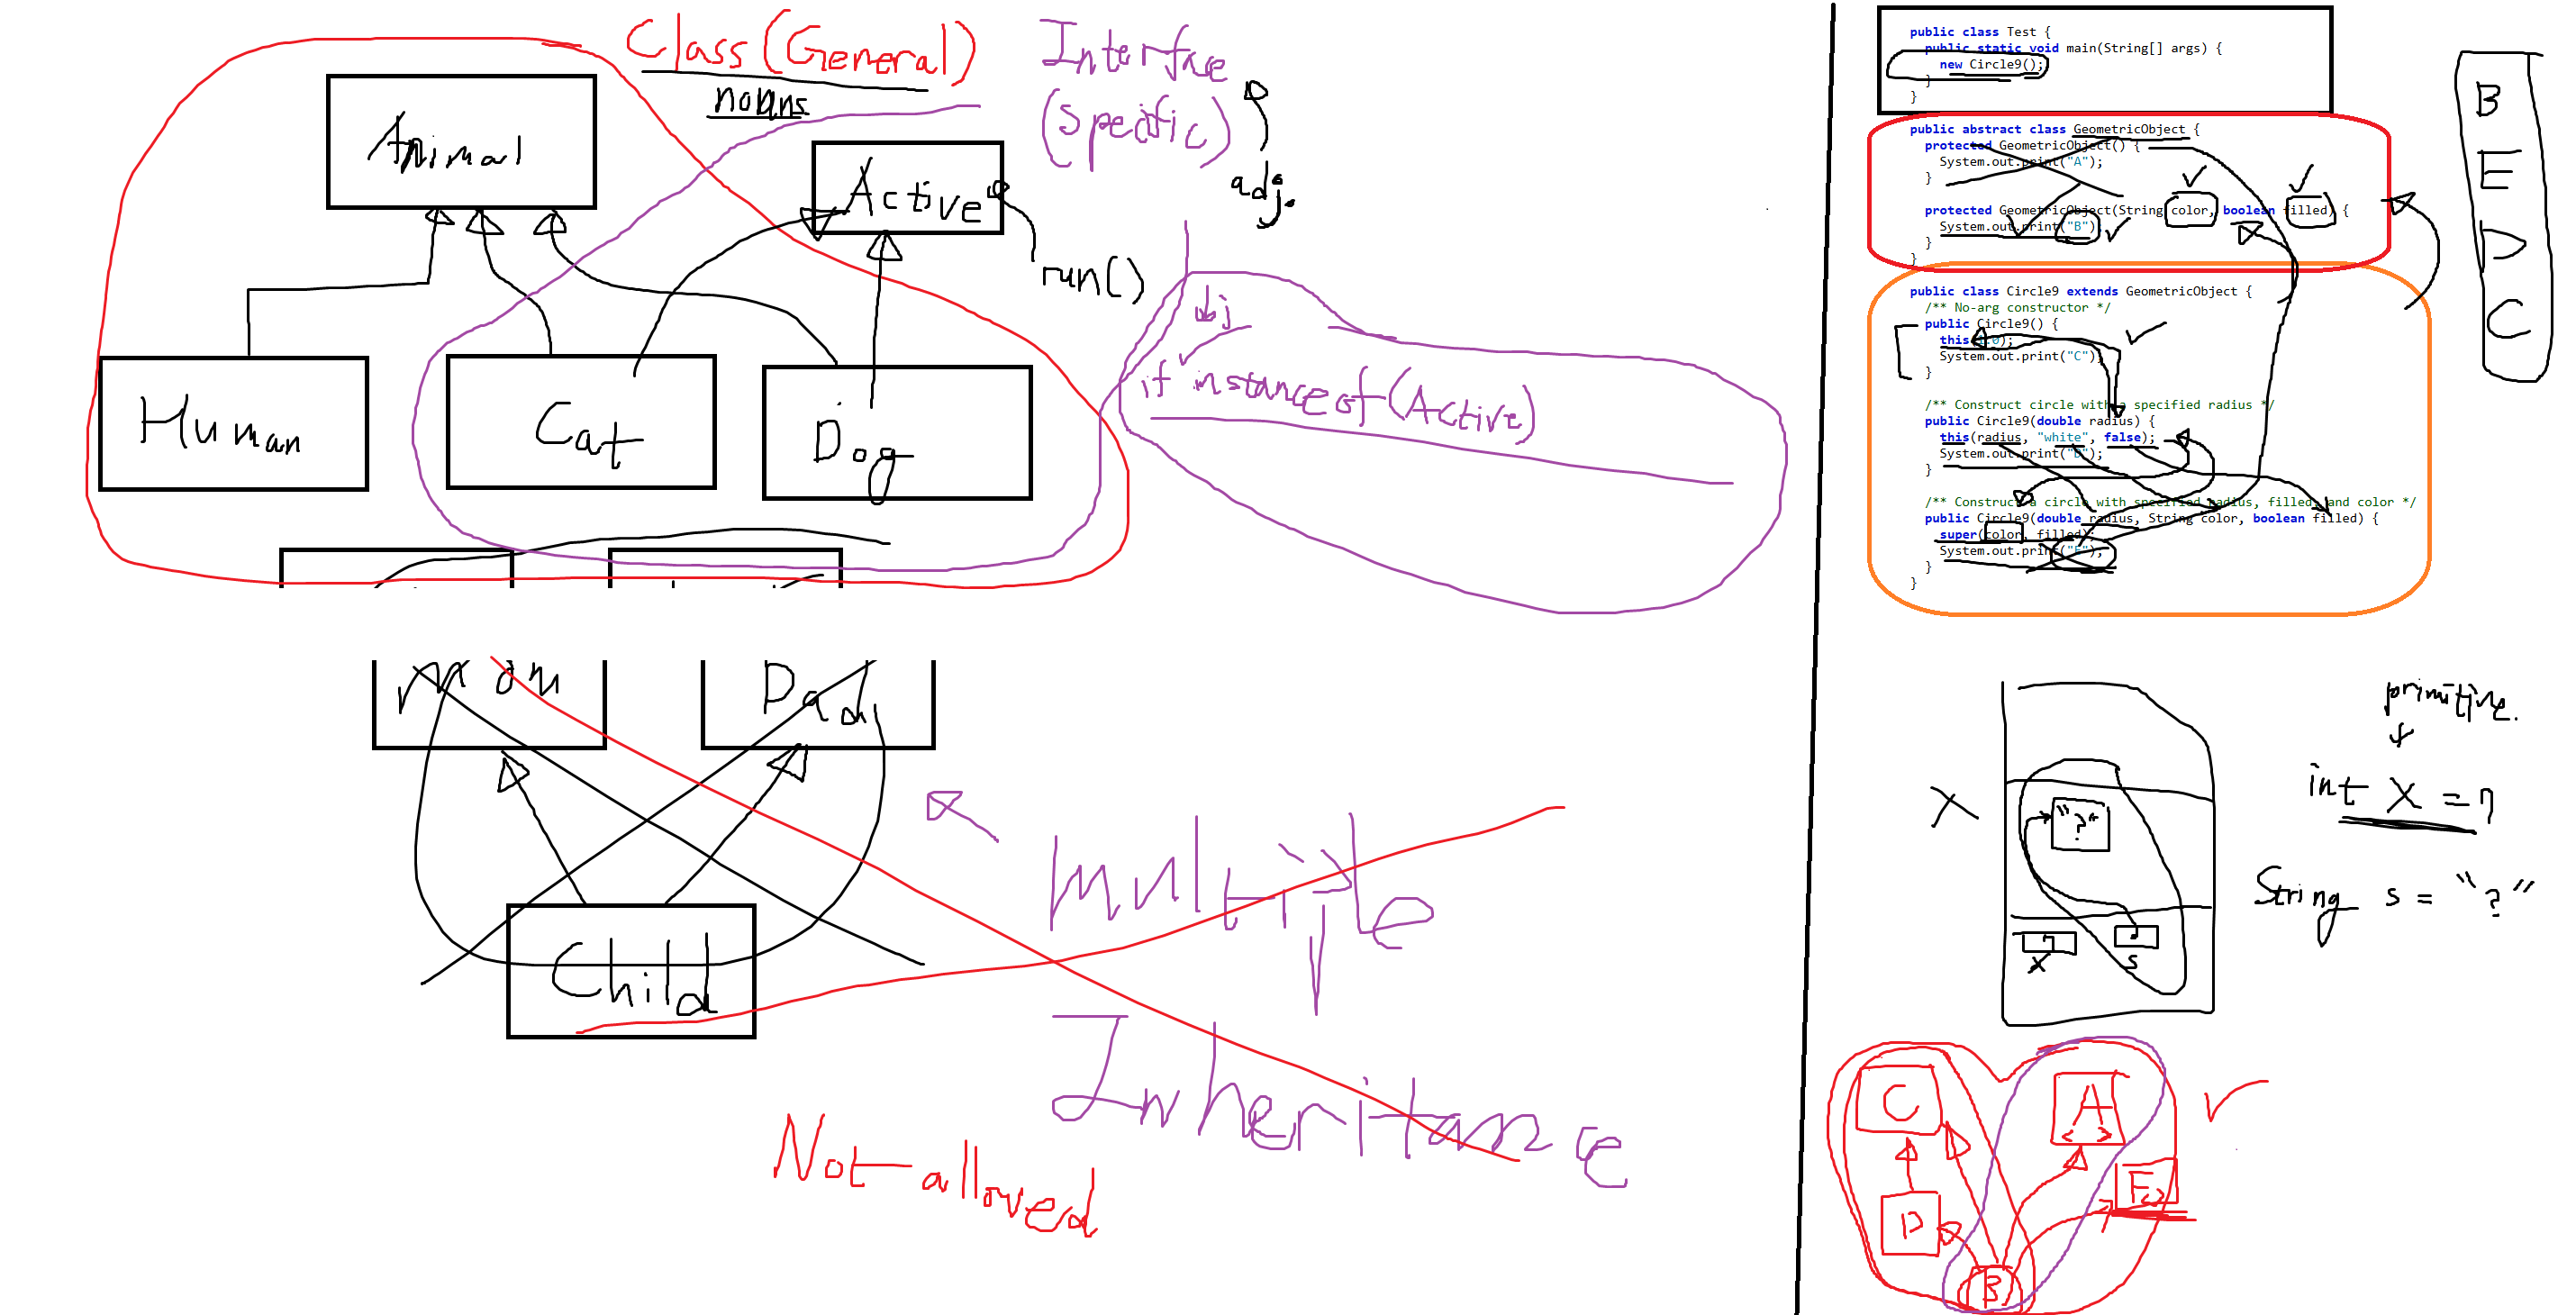 Class (General)
nouns
Interface
(Specific)
adj.
Animal
Active
run()
Human
Cat
Dog
if instance of (Active)
Mom
Dad
Child
Multiple
Inheritance
Not allowed
public class Test {
public static void main(String[] args) {
new Circle9();
}
}
public abstract class GeometricObject {
protected GeometricObject() {
System.out.print("A");
}
protected GeometricObject(String color, boolean filled) {
System.out.print("B")
}
}
public class Circle9 extends GeometricObject {
/** No-arg constructor */
public Circle9() {
this(1.0);
System.out.print("C");
}
/** Construct circle with a specified radius */
public Circle9(double radius) {
this(radius, "white", false);
System.out.print("D");
}
/** Construct a circle with specified radius, filled, and color */
public Circle9(double radius, String color, boolean filled) {
super(color, filled);
System.out.print("E");
}
}
B
E
D
C
primitive.
int x = 7
String s = "?"
X
"?"
7
x
s
C
A
< >
D
E
B